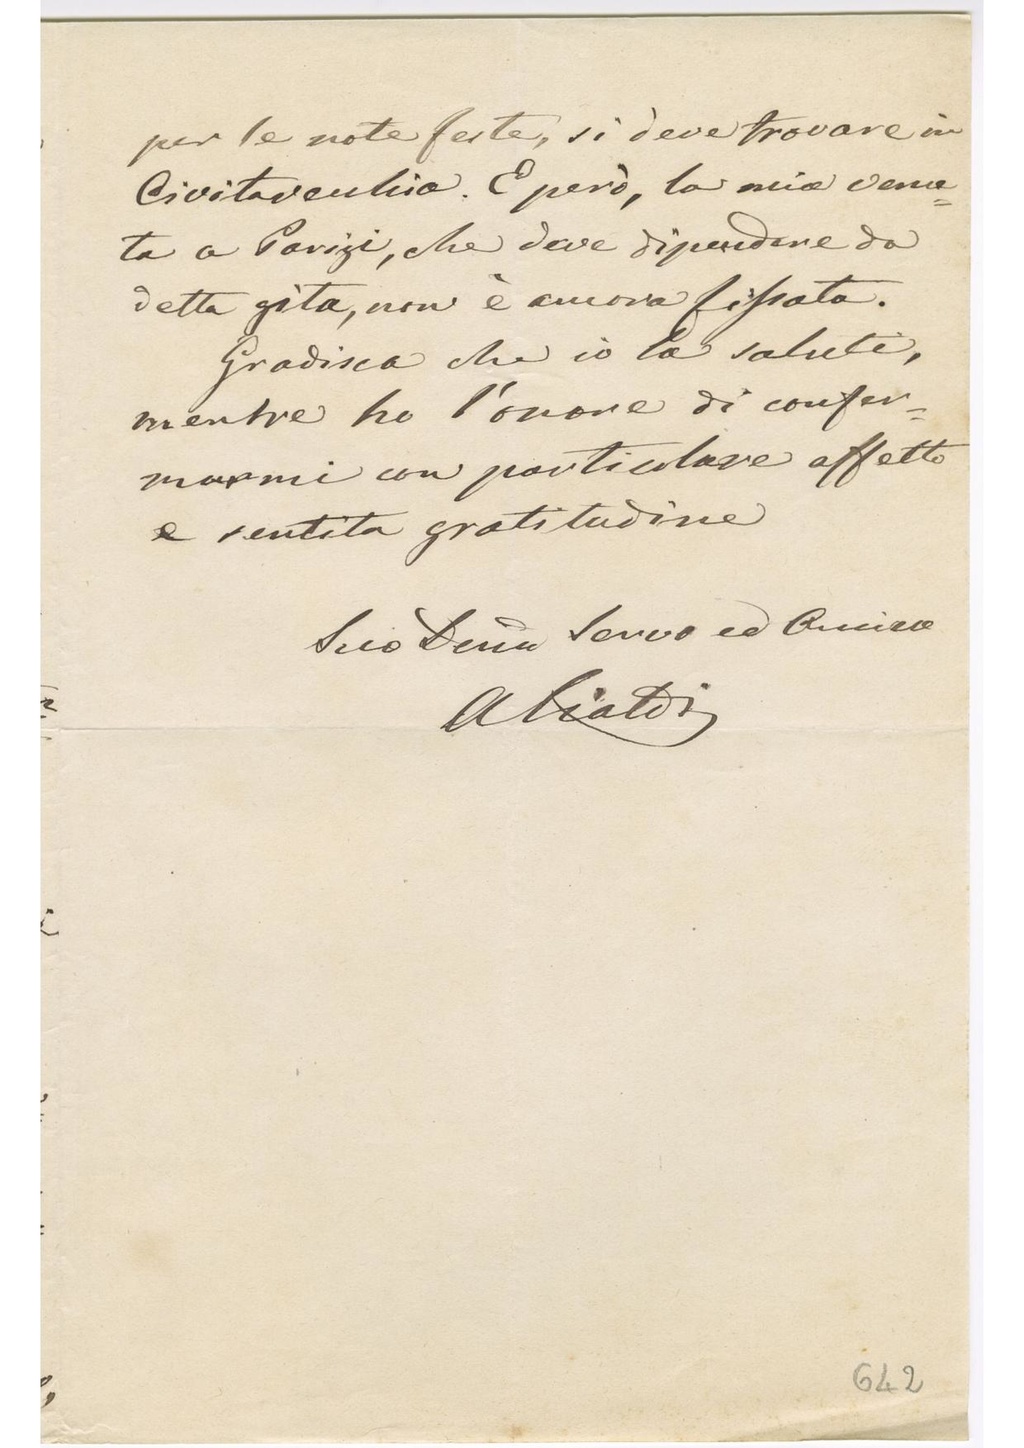 per le note feste, si deve trovare in
Civitavecchia. E però, la mia venu=
ta a Parigi, che deve dipendere da
detta gita, non è ancora fissata.
Gradisca che io la saluti,
mentre ho l'onore di confer=
marmi con particolare affetto
e sentita gratitudine
Suo Devm̃o Servo ed Amico
A Cialdi
642